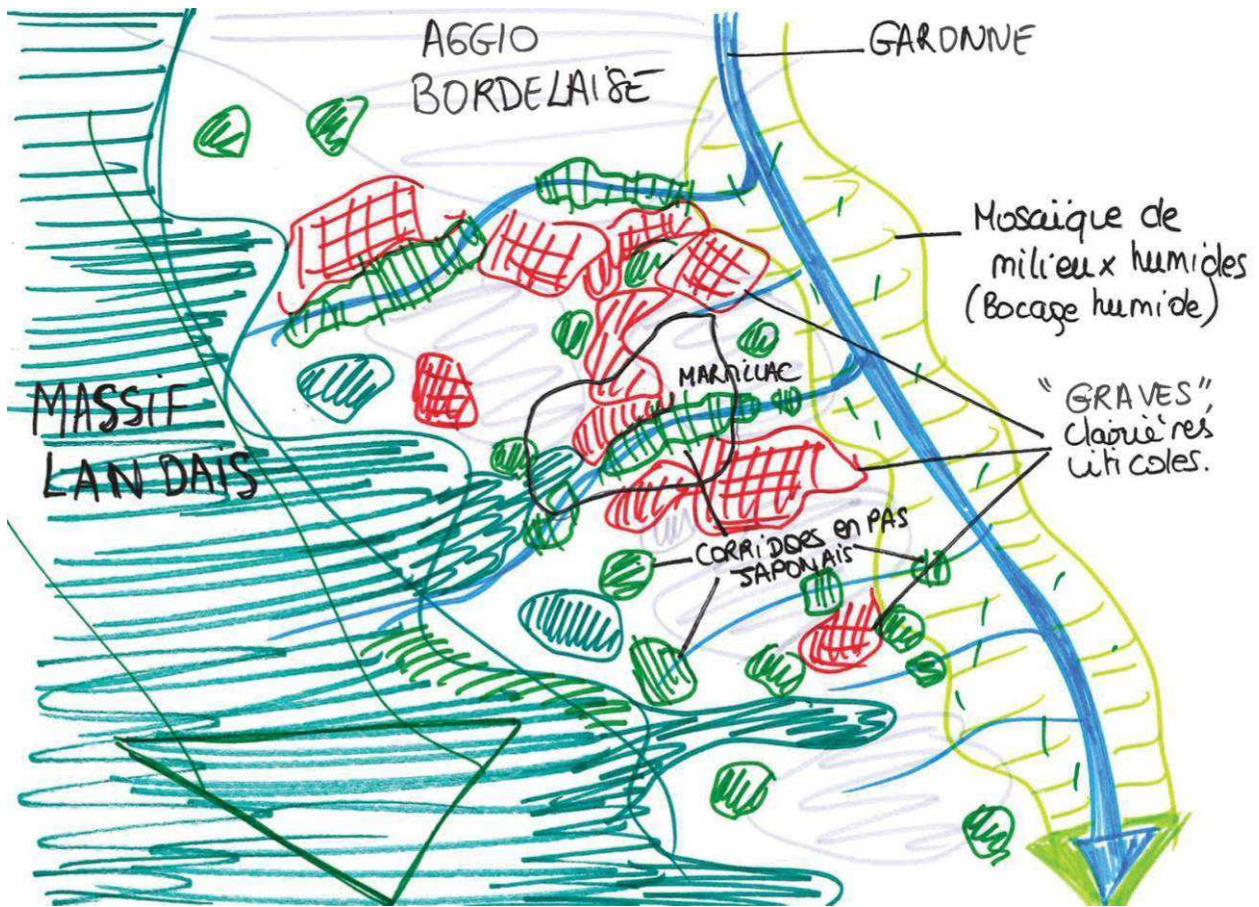 AGGLO
BORDELAISE
GARONNE
Mosaïque de
milieux humides
(Bocage humide)
MASSIF
LANDAIS
MARTILLAC
"GRAVES"
Clairières
viticoles.
CORRIDORS en PAS
JAPONAIS